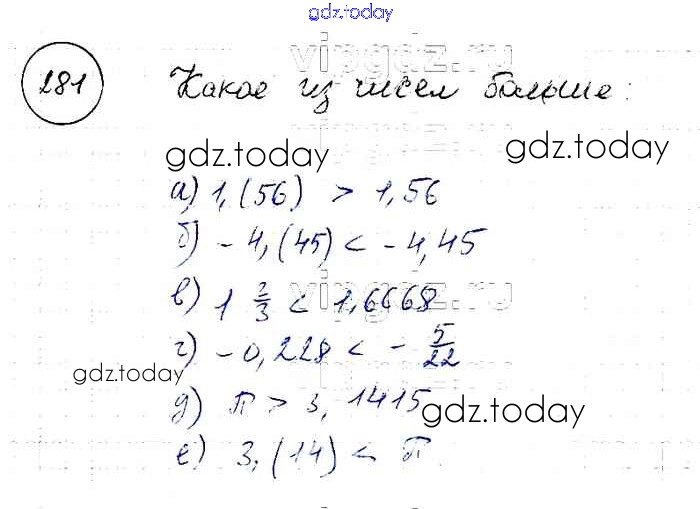 gdz.today
vipgdz.ru
281 Какое из чисел больше:
gdz.today gdz.today
а) 1,(56) > 1,56
б) -4,(45) < -4,45
в) 1 2/3 < 1,6668
vipgdz.ru
г) -0,228 < - 5/22
gdz.today
д) π > 3,1415
gdz.today
е) 3,(14) < π